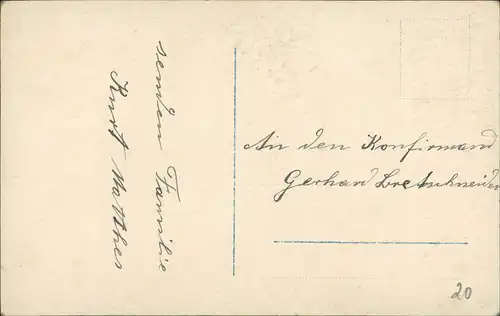 senden Familie
Kurt Matthes
An den Konfirmand
Gerhard Bretschneider
20